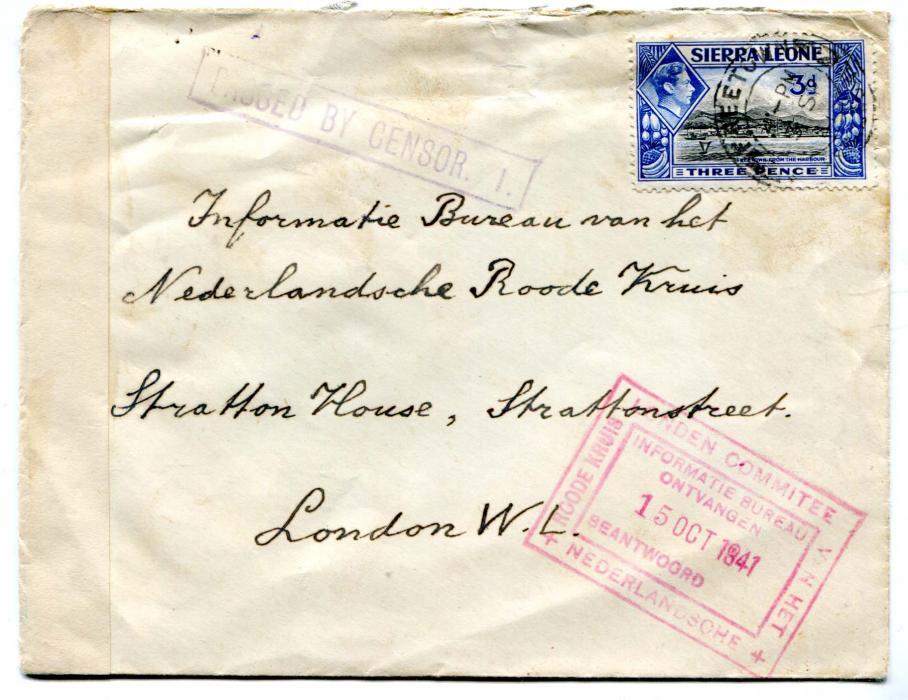 PASSED BY CENSOR. 1.
SIERRA LEONE
3d
FREETOWN FROM THE HARBOUR
THREE PENCE
Informatie Bureau van het
Nederlandsche Roode Kruis
Stratton House, Strattonstreet.
London W.1.
LONDEN COMMITEE
VAN HET
NEDERLANDSCHE
ROODE KRUIS
INFORMATIE BUREAU
ONTVANGEN
15 OCT 1941
BEANTWOORD